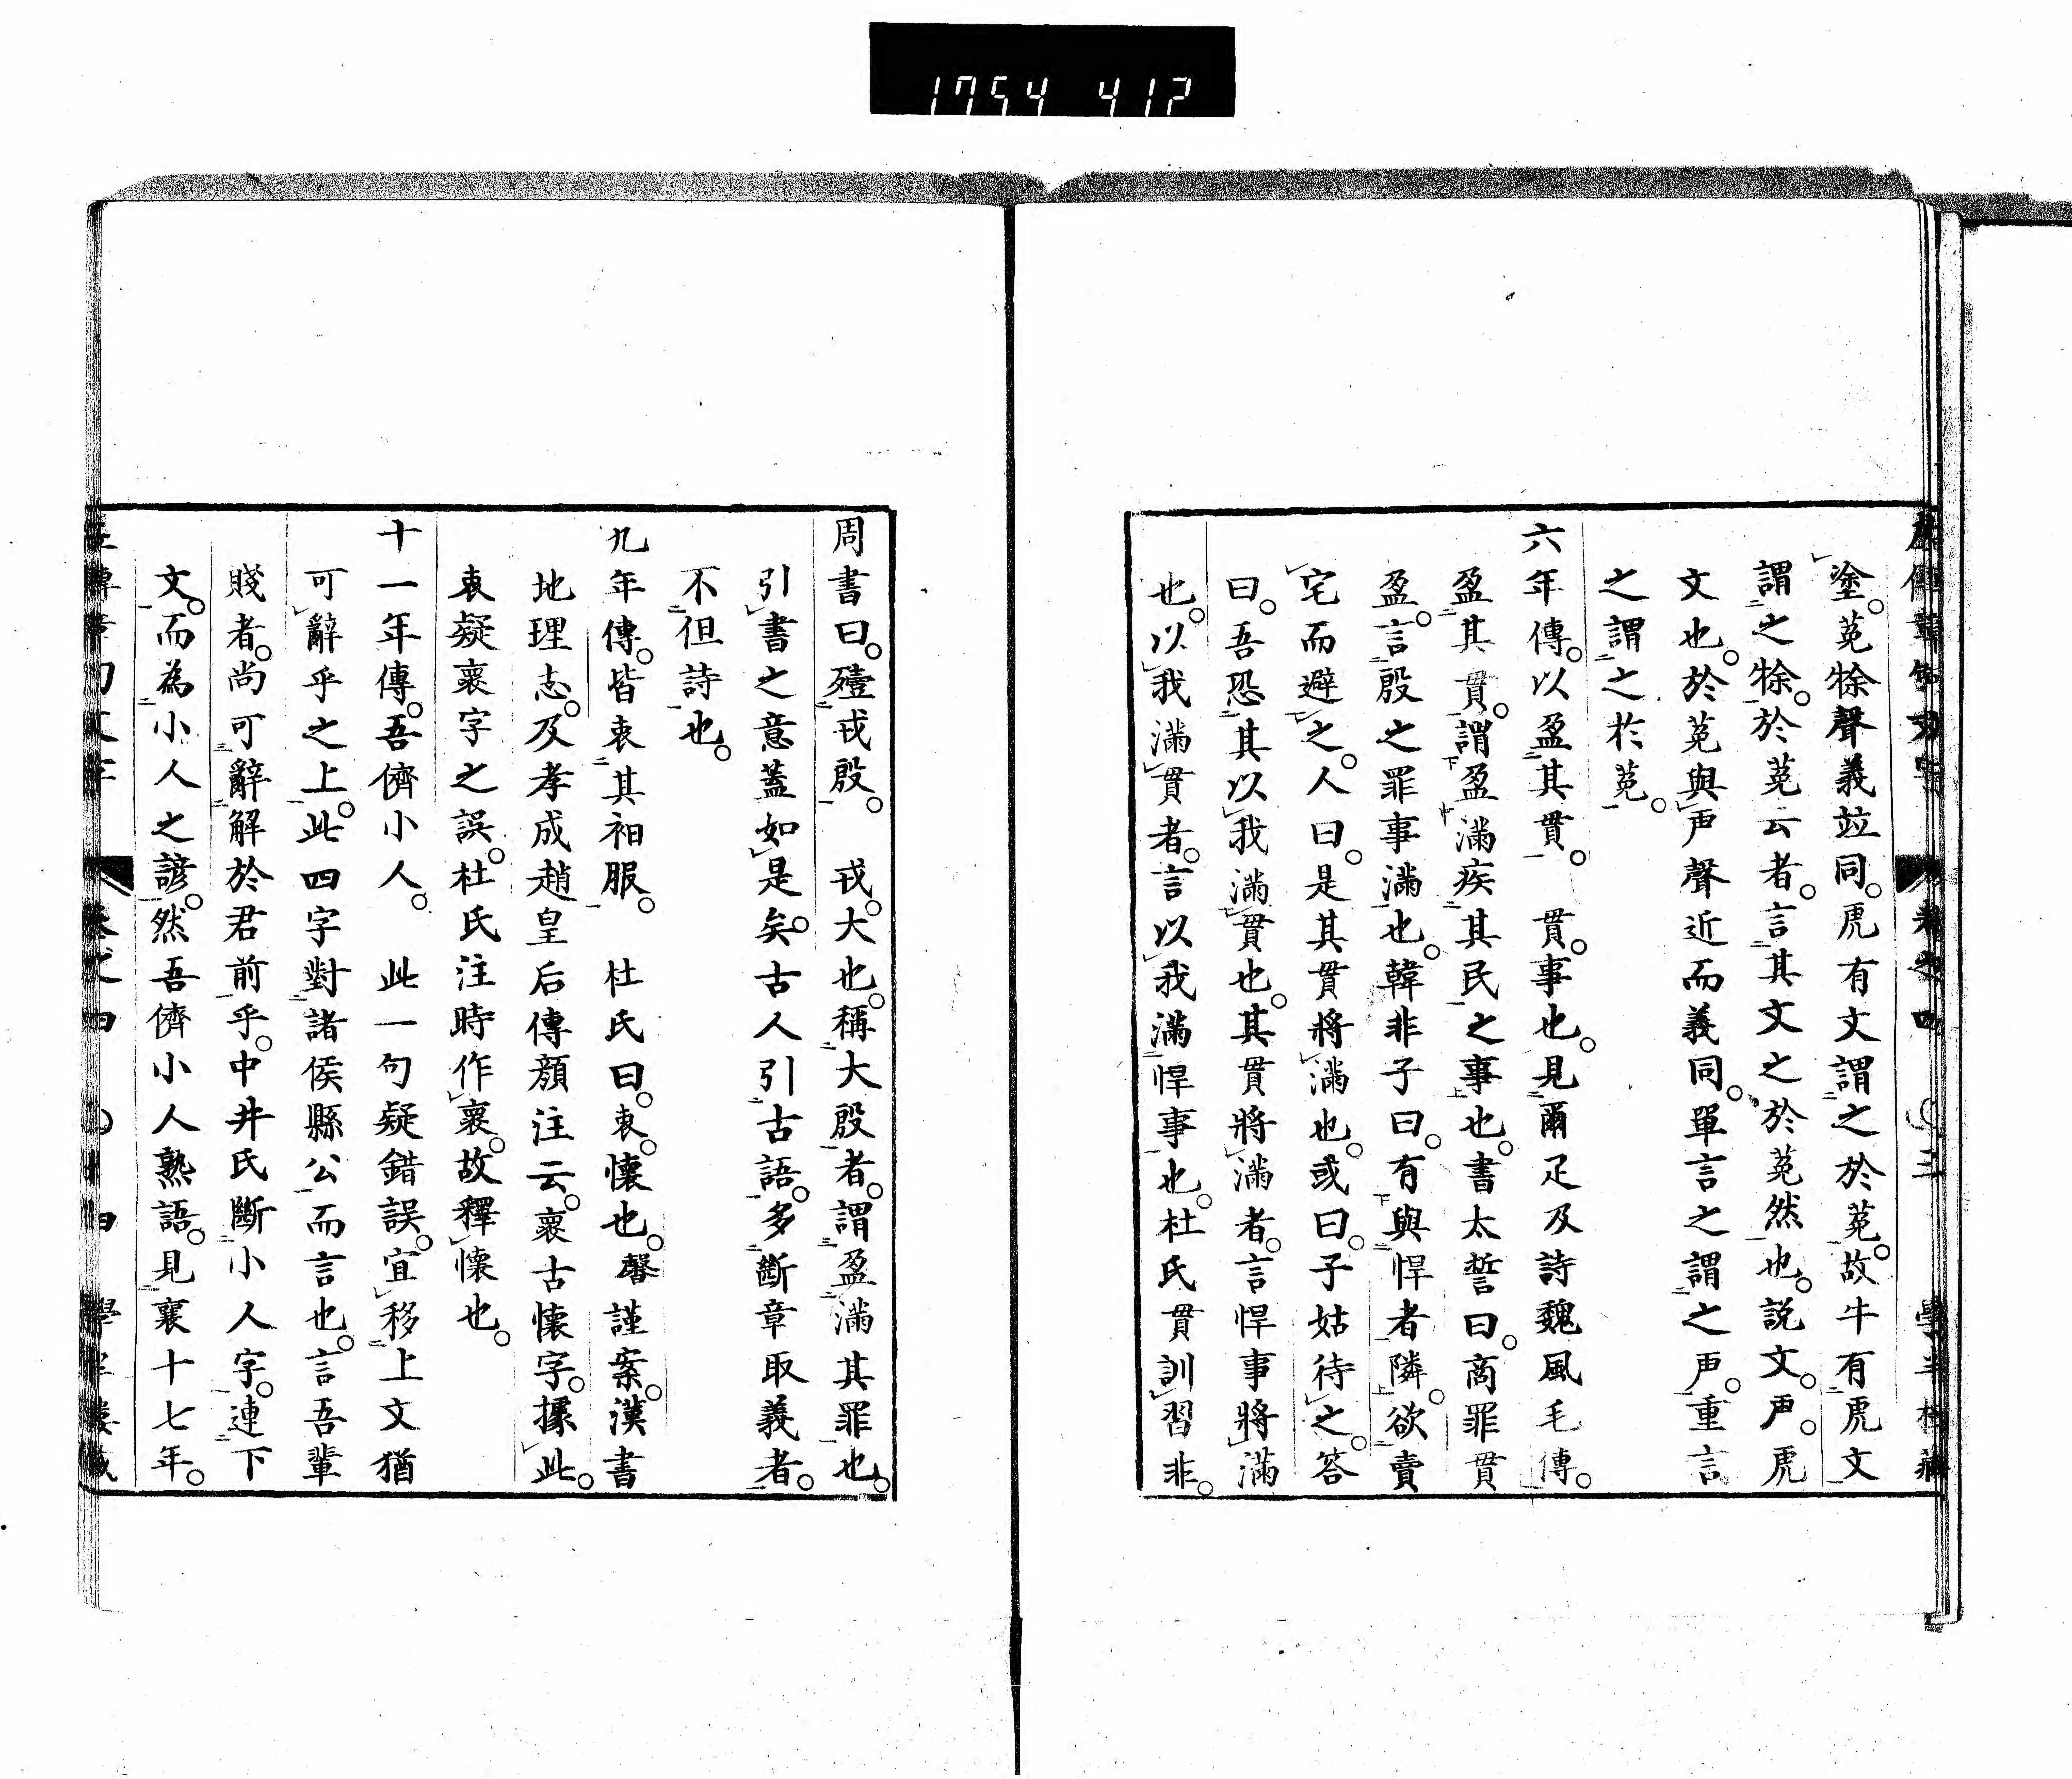 1754 412
塗。莵㹱聲義竝同。虎有文謂之於莵。故牛有虎文
謂之㹱。於莵云者。言其文之於莵然也。説文。虍。虎
文也。於莵與虍聲近而義同。單言之謂之虍。重言
之謂之於莵。
六年傳。以盈其貫。　貫。事也。見爾疋及詩魏風毛傳。
盈其貫。謂盈滿疾其民之事也。書太誓曰。商罪貫
盈。言殷之罪事滿也。韓非子曰。有與悍者隣。欲賣
宅而避之。人曰。是其貫將滿也。或曰。子姑待之。答
曰。吾恐其以我滿貫也。其貫將滿者。言悍事將滿
也。以我滿貫者。言以我滿悍事也。杜氏貫訓習非。
周書曰。殪戎殷。　戎。大也。稱大殷者。謂盈滿其罪也。
引書之意蓋如是矣。古人引古語。多斷章取義者。
不但詩也。
九年傳。皆衷其衵服。　杜氏曰。衷。懷也。馨謹案。漢書
地理志。及孝成趙皇后傳顔注云。褱古懷字。據此。
衷疑褱字之誤。杜氏注時作褱。故釋懷也。
十一年傳。吾儕小人。　此一句疑錯誤。宜移上文猶
可辭乎之上。此四字對諸侯縣公而言也。言吾輩
賤者。尚可辭解於君前乎。中井氏斷小人字。連下
文。而為小人之諺。然吾儕小人熟語。見襄十七年。